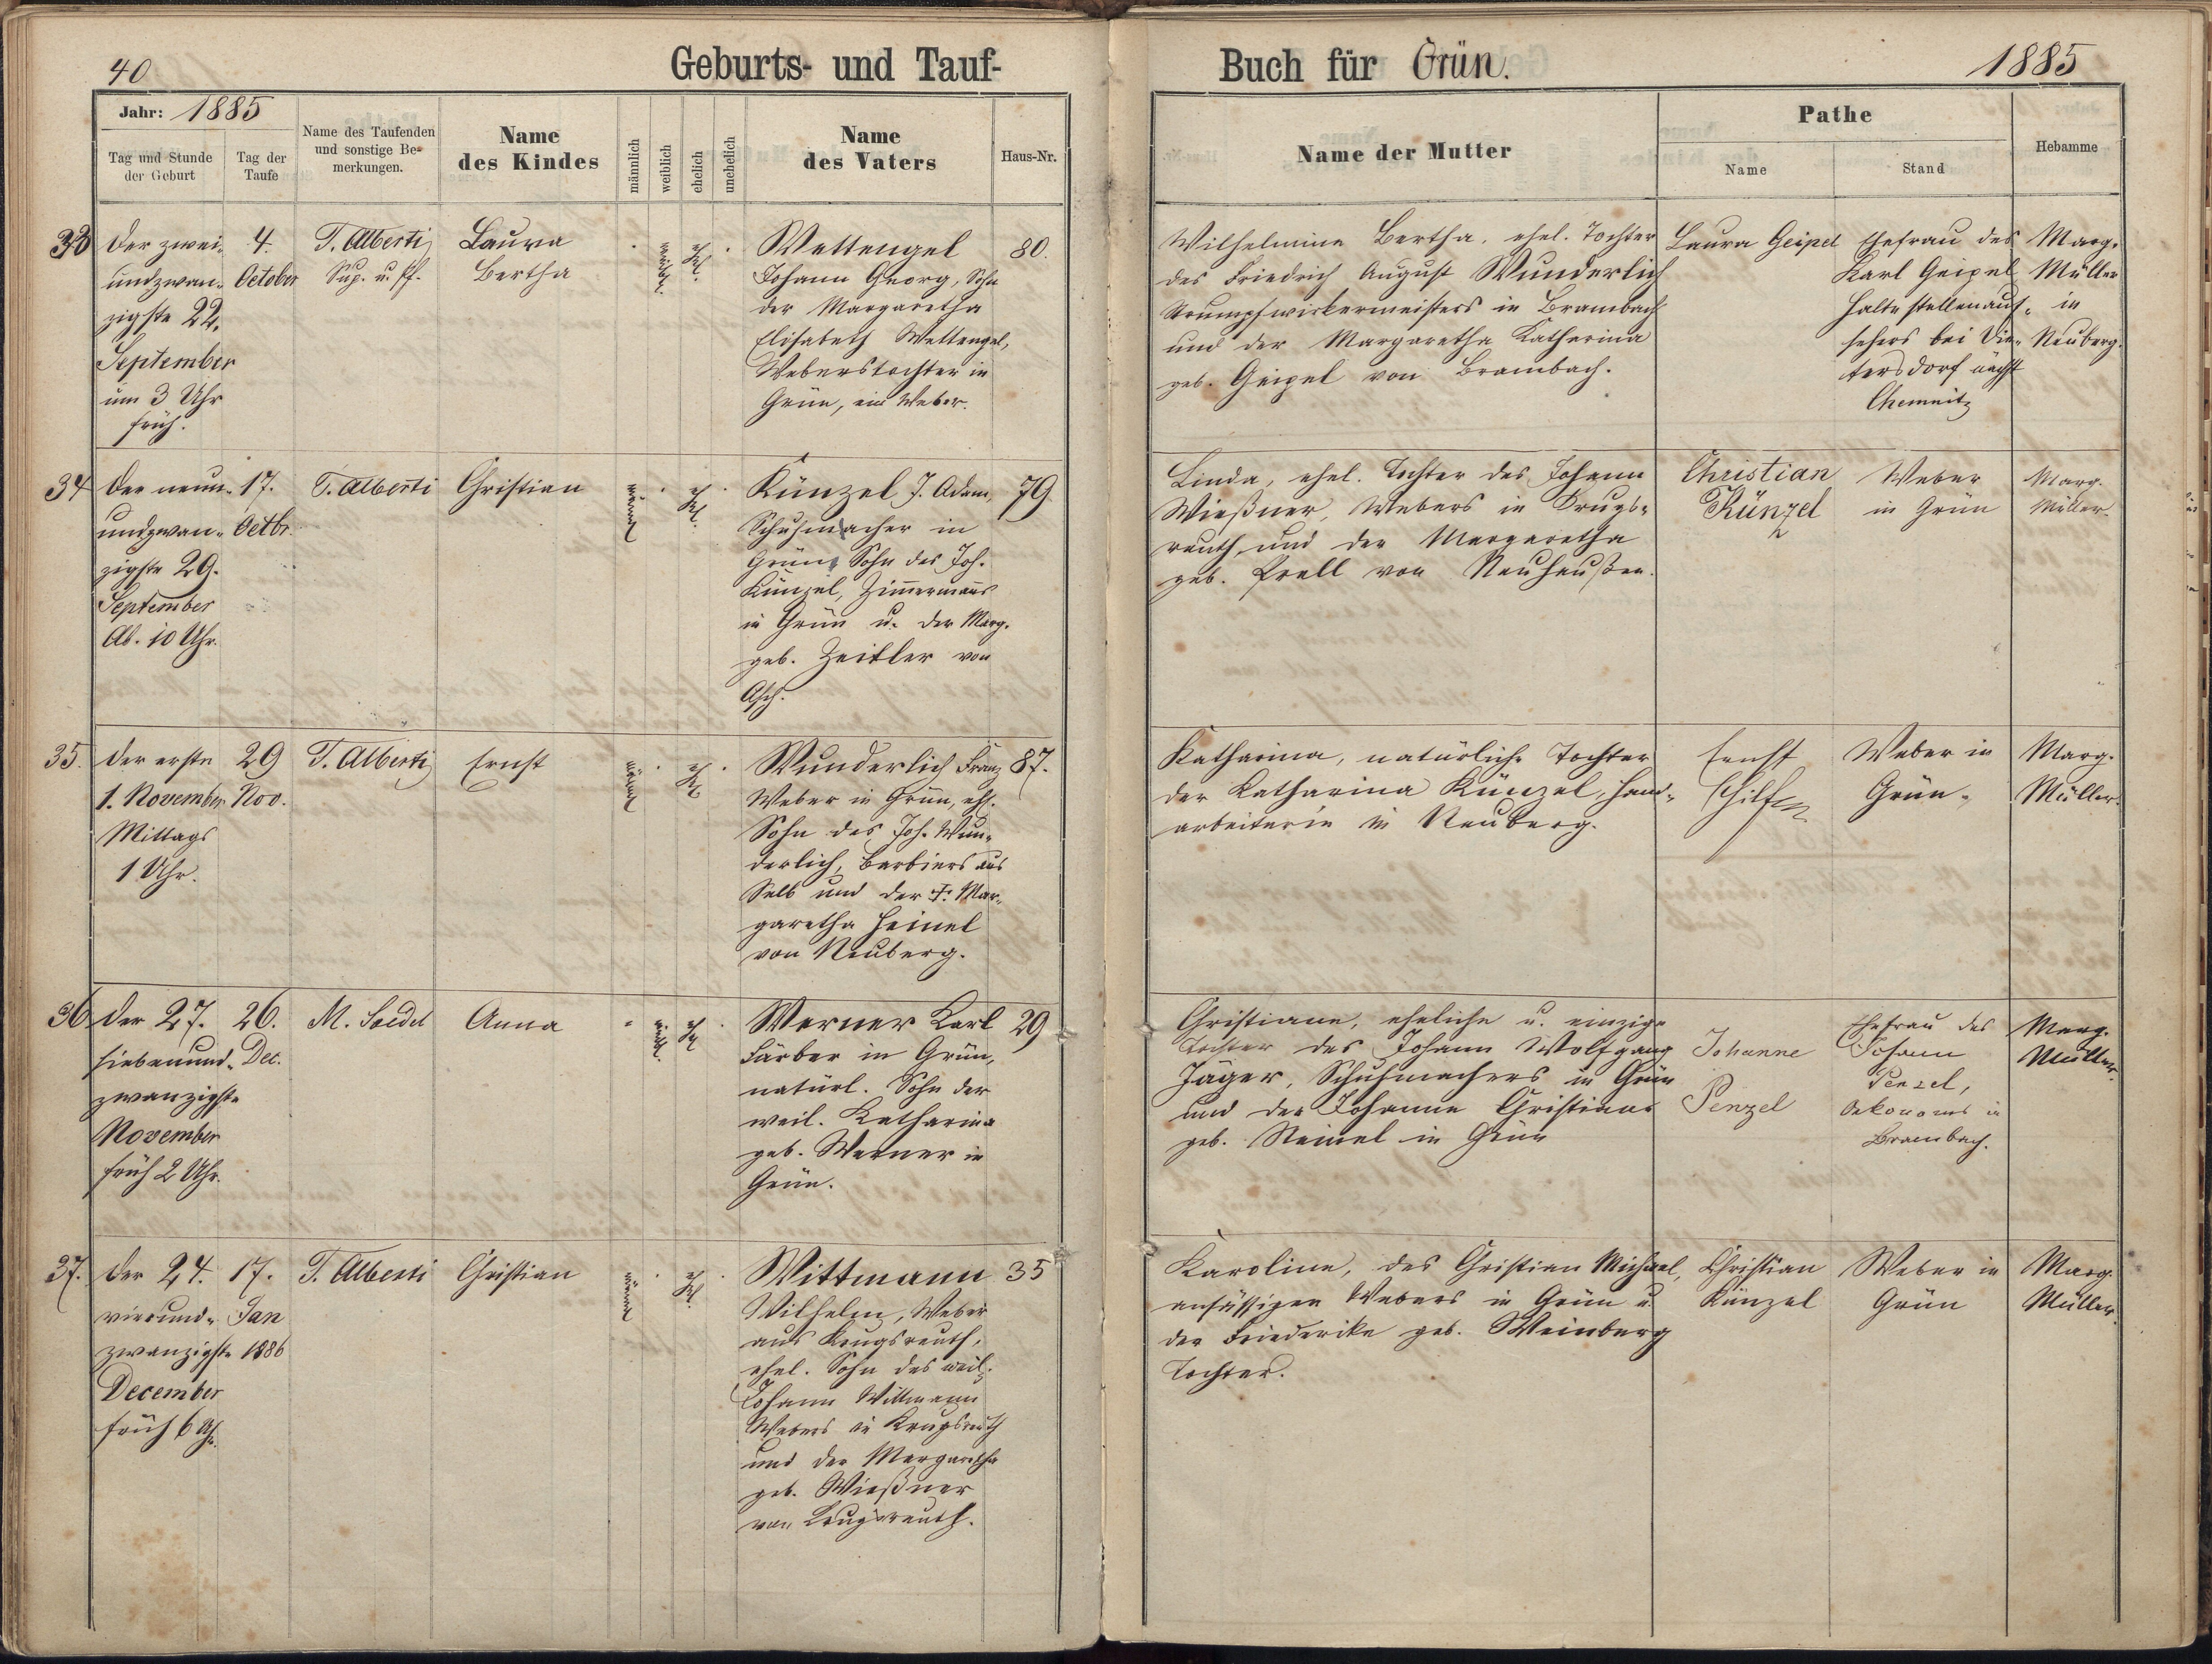 40
Geburts- und Tauf-
Jahr: 1885
Tag und Stunde
der Geburt
Tag der
Taufe
Name des Taufenden
und sonstige Be-
merkungen.
Name
des Kindes
männlich
weiblich
ehelich
unehelich
Name
des Vaters
Haus-Nr.
33
Der zwei-
undzwan-
zigste 22.
September
um 3 Uhr
früh.
4.
October
T. Alberti
Sup. u. Pf.
Laura
Bertha
weibl.
ehel.
Wettengel
Johann Georg, Sohn
der Margaretha
Elisabeth Wettengel,
Weberstochter in
Grün, ein Weber.
80.
34
Der neun-
undzwan-
zigste 29.
September
Ab. 10 Uhr.
17.
Octbr.
T. Alberti
Christian
männl.
ehel.
Künzel J. Adam,
Schuhmacher in
Grün, Sohn des Joh.
Künzel, Zimmermanns
in Grün u. der Marg.
geb. Zeidler von
Asch.
79.
35.
Der erste
1. November
Mittags
1 Uhr.
29
Nov.
T. Alberti
Ernst
männl.
ehel.
Wunderlich Franz
Weber in Grün, ehl.
Sohn des Joh. Wun-
derlich, Barbiers aus
Selb und der F. Mar-
garetha Heinel
von Neuberg.
87.
36
Der 27.
siebenund-
zwanzigste
November
früh 2 Uhr.
26.
Dec.
M. Soedel
Anna
weibl.
ehel.
Werner Karl
Färber in Grün,
natürl. Sohn der
weil. Katharina
geb. Werner in
Grün.
29
37.
Der 24.
vierund-
zwanzigste
December
früh 6 Uhr.
17.
Jan
1886
T. Alberti
Christian
männl.
ehel.
Wittmann
Wilhelm, Weber
aus Krugsreuth,
ehel. Sohn des weil.
Johann Wittmann
Webers in Krugsreuth
und der Margaretha
geb. Wießner
von Krugsreuth.
35
Buch für Grün.
1885
Name der Mutter
Pathe
Name
Stand
Hebamme
Wilhelmine Bertha, ehel. Tochter
des Friedrich August Wunderlich
Strumpfwirkermeisters in Brambach
und der Margaretha Katharina
geb. Geipel von Brambach.
Laura Geipel
Ehefrau des
Karl Geipel
Haltestellenauf-
sehers bei Die-
tersdorf nächst
Chemnitz
Marg.
Müller
in
Neuberg.
Linda, ehel. Tochter des Johann
Wießner, Webers in Krugs-
reuth und der Margaretha
geb. Prell von Neuhaußen.
Christian
Künzel
Weber
in Grün
Marg.
Müller.
Katharina, natürliche Tochter
der Katharina Künzel, Hand-
arbeiterin in Neuberg.
Ernst
Weber in
Grün.
Marg.
Müller.
Christiane, eheliche u. einzige
Tochter des Johann Wolfgang
Jäger, Schuhmachers in Grün
und der Johanne Christiane
geb. Steinel in Grün
Johanne
Penzel
Ehefrau des
Johann
Penzel,
Oekonoms in
Brambach.
Marg.
Müller.
Karoline, des Christian Michael,
ansässigen Webers in Grün u.
der Friederike geb. Weinberg
Tochter.
Christian
Künzel
Weber in
Grün
Marg.
Müller.